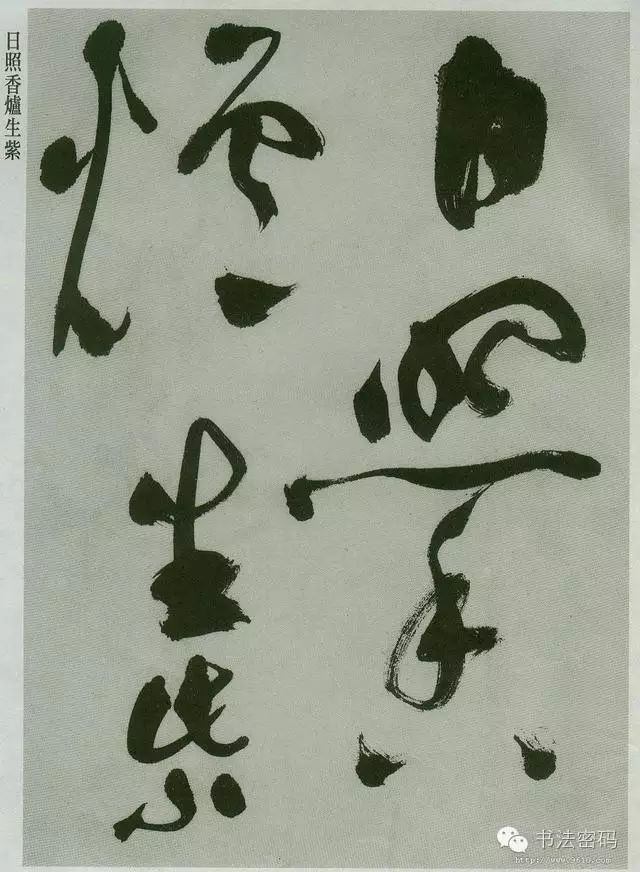 日照香
爐生紫
日照香爐生紫
书法密码
http://www.9610.com